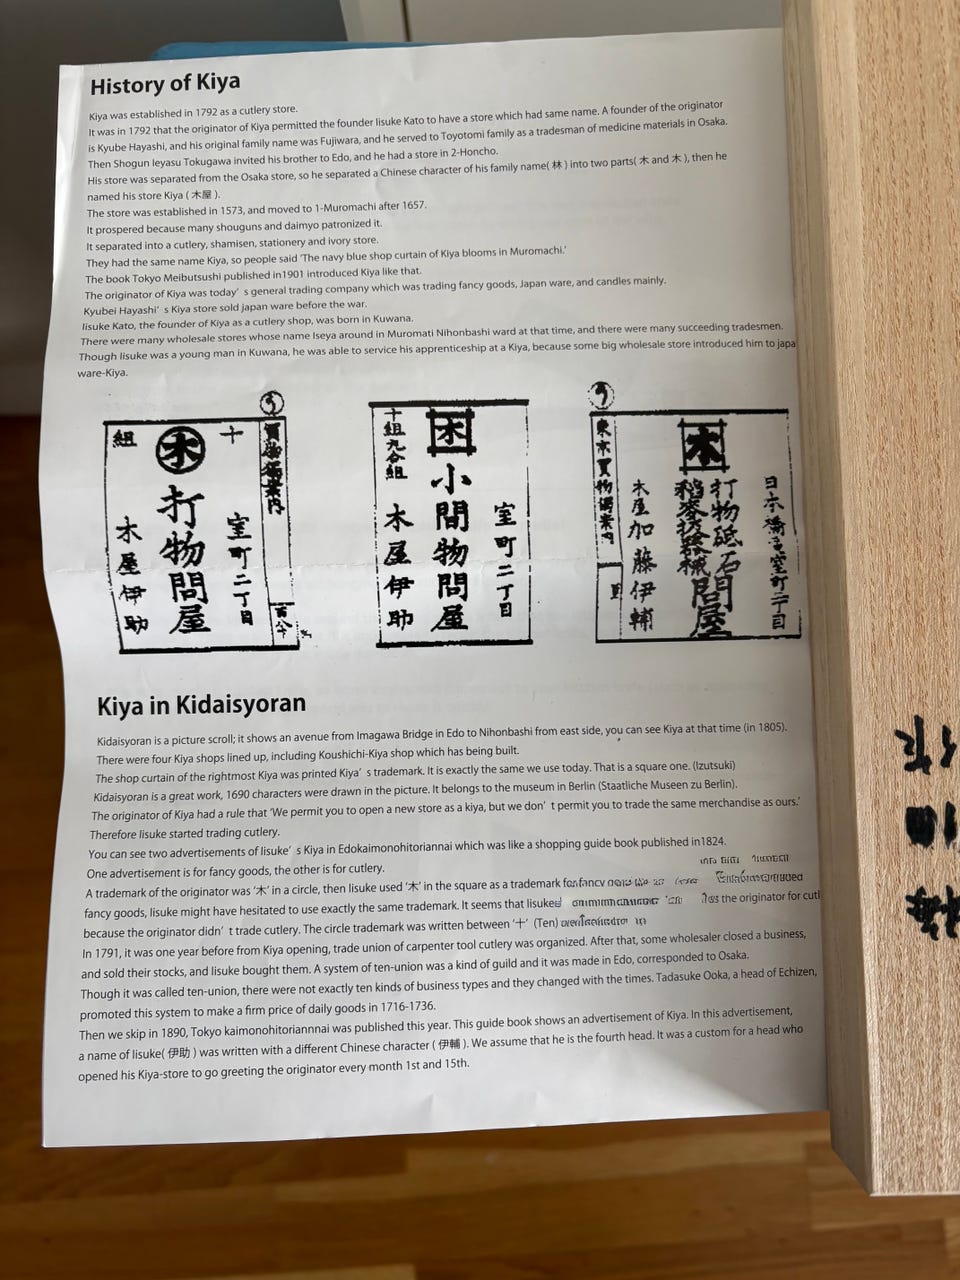 History of Kiya
Kiya was established in 1792 as a cutlery store.
It was in 1792 that the originator of Kiya permitted the founder Iisuke Kato to have a store which had same name. A founder of the originator
is Kyube Hayashi, and his original family name was Fujiwara, and he served to Toyotomi family as a tradesman of medicine materials in Osaka.
Then Shogun Ieyasu Tokugawa invited his brother to Edo, and he had a store in 2-Honcho.
His store was separated from the Osaka store, so he separated a Chinese character of his family name( 林 ) into two parts( 木 and 木 ), then he
named his store Kiya ( 木屋 ).
The store was established in 1573, and moved to 1-Muromachi after 1657.
It prospered because many shouguns and daimyo patronized it.
It separated into a cutlery, shamisen, stationery and ivory store.
They had the same name Kiya, so people said ‘The navy blue shop curtain of Kiya blooms in Muromachi.’
The book Tokyo Meibutsushi published in1901 introduced Kiya like that.
The originator of Kiya was today’ s general trading company which was trading fancy goods, Japan ware, and candles mainly.
Kyubei Hayashi’ s Kiya store sold japan ware before the war.
Iisuke Kato, the founder of Kiya as a cutlery shop, was born in Kuwana.
There were many wholesale stores whose name Iseya around in Muromati Nihonbashi ward at that time, and there were many succeeding tradesmen.
Though Iisuke was a young man in Kuwana, he was able to service his apprenticeship at a Kiya, because some big wholesale store introduced him to japa
ware-Kiya.
十
室町二丁目
木
打物問屋
組
木屋伊助
室町二丁目
木
小間物問屋
十組九合組
木屋伊助
日本橋区室町二丁目
木
打物砥石
問屋
木屋加藤伊輔
東京買物獨案内
Kiya in Kidaisyoran
Kidaisyoran is a picture scroll; it shows an avenue from Imagawa Bridge in Edo to Nihonbashi from east side, you can see Kiya at that time (in 1805).
There were four Kiya shops lined up, including Koushichi-Kiya shop which has being built.
The shop curtain of the rightmost Kiya was printed Kiya’ s trademark. It is exactly the same we use today. That is a square one. (Izutsuki)
Kidaisyoran is a great work, 1690 characters were drawn in the picture. It belongs to the museum in Berlin (Staatliche Museen zu Berlin).
The originator of Kiya had a rule that ‘We permit you to open a new store as a kiya, but we don’ t permit you to trade the same merchandise as ours.’
Therefore Iisuke started trading cutlery.
You can see two advertisements of Iisuke’ s Kiya in Edokaimonohitoriannai which was like a shopping guide book published in1824.
One advertisement is for fancy goods, the other is for cutlery.
A trademark of the originator was ‘木’ in a circle, then Iisuke used ‘木’ in the square as a trademark for fancy
fancy goods, Iisuke might have hesitated to use exactly the same trademark. It seems that Iisuke the originator for cutl
because the originator didn’ t trade cutlery. The circle trademark was written between ‘十’ (Ten)
In 1791, it was one year before from Kiya opening, trade union of carpenter tool cutlery was organized. After that, some wholesaler closed a business,
and sold their stocks, and Iisuke bought them. A system of ten-union was a kind of guild and it was made in Edo, corresponded to Osaka.
Though it was called ten-union, there were not exactly ten kinds of business types and they changed with the times. Tadasuke Ooka, a head of Echizen,
promoted this system to make a firm price of daily goods in 1716-1736.
Then we skip in 1890, Tokyo kaimonohitoriannnai was published this year. This guide book shows an advertisement of Kiya. In this advertisement,
a name of Iisuke( 伊助 ) was written with a different Chinese character ( 伊輔 ). We assume that he is the fourth head. It was a custom for a head who
opened his Kiya-store to go greeting the originator every month 1st and 15th.